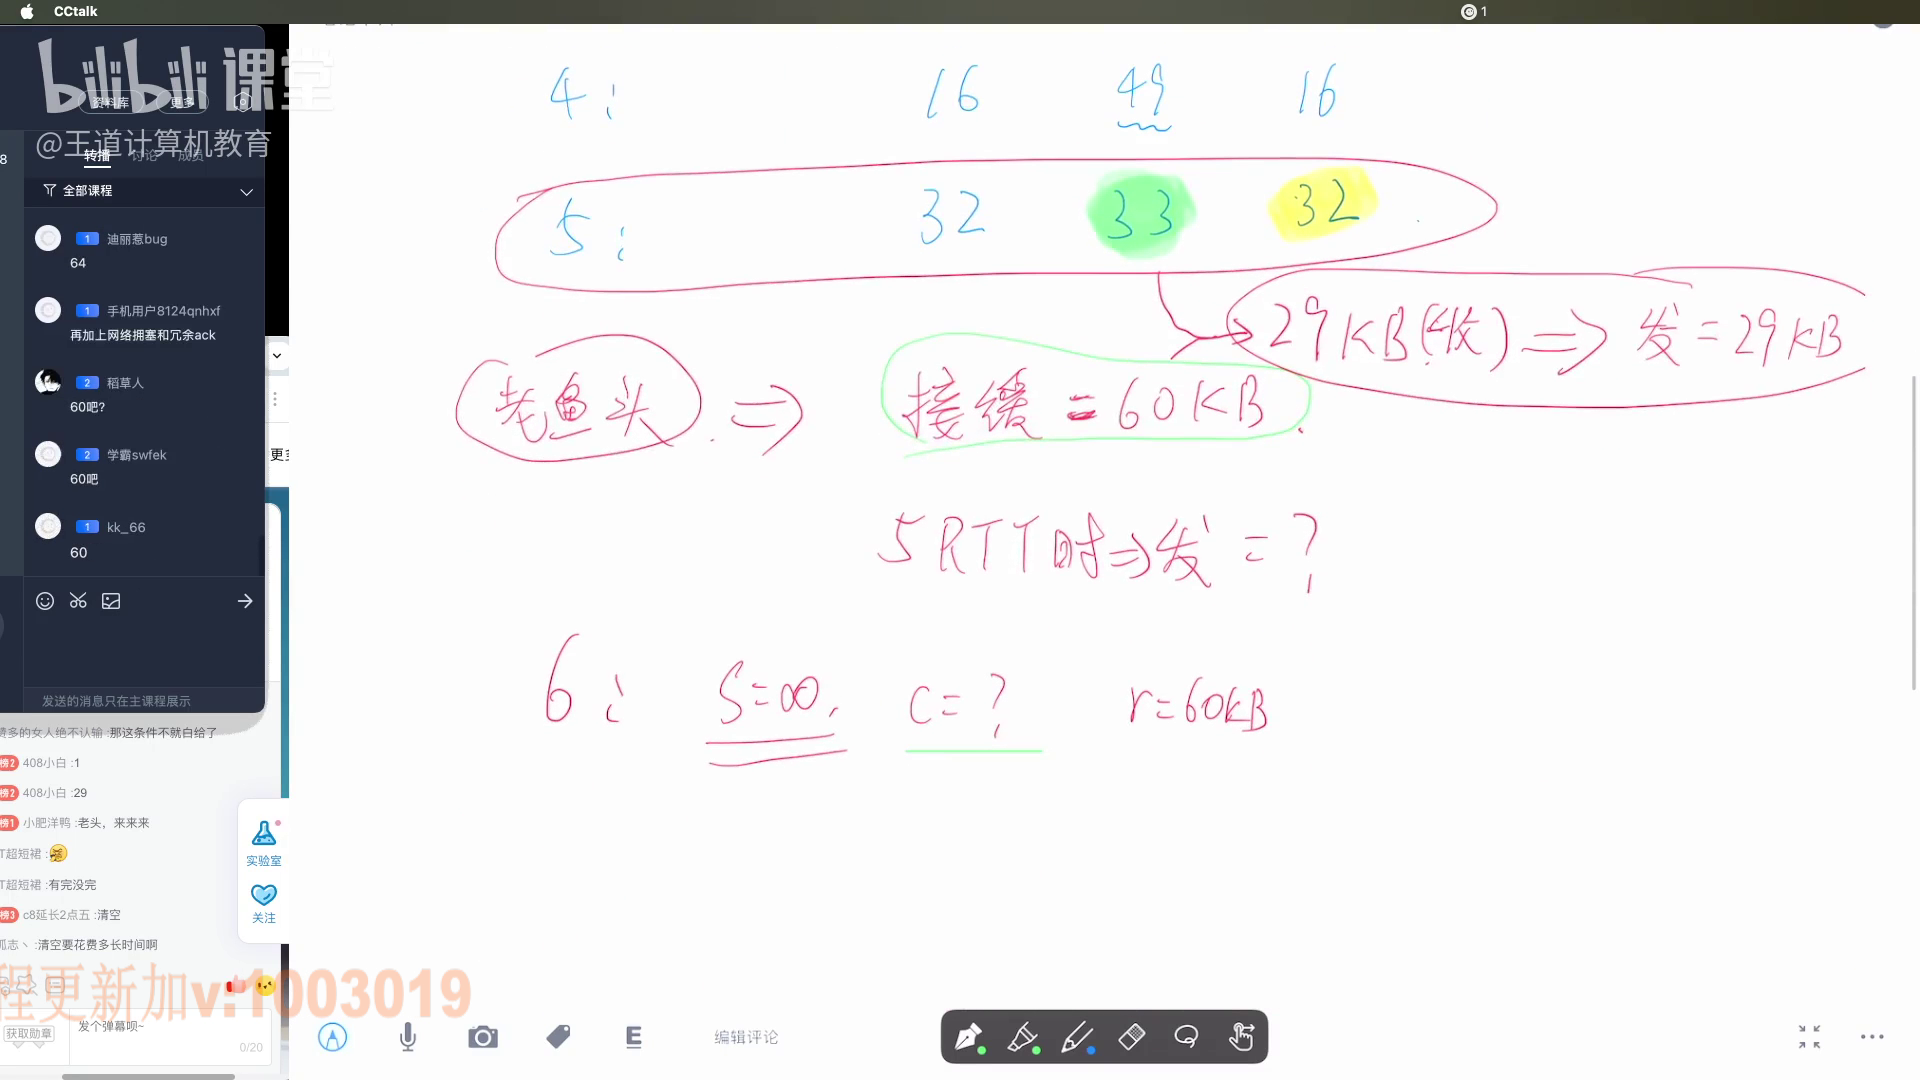 CCtalk
1
bilibili 课堂
资料库 更多
@王道计算机教育
转播 讨论 成员
8
全部课程
1 迪丽惹bug
64
1 手机用户8124qnhxf
再加上网络拥塞和冗余ack
2 稻草人
60吧?
2 学霸swfek
60吧
1 kk_66
60
发送的消息只在主课程展示
赞多的女人绝不认输 :那这条件不就白给了
榜2 408小白 :1
榜2 408小白 :29
榜1 小肥洋鸭 :老头，来来来
T超短裙 :
T超短裙 :有完没完
榜3 c8延长2点五 :清空
孤志丶 :清空要花费多长时间啊
实验室
关注
程更新加v:1003019
获取勋章
发个弹幕呗~
0/20
4: 16 49 16
5: 32 33 32
29KB(收) ⇒ 发=29KB
老鱼头 ⇒ 接缓=60KB.
5RTT时⇒发=?
6: S=∞, c=? r=60KB
编辑评论